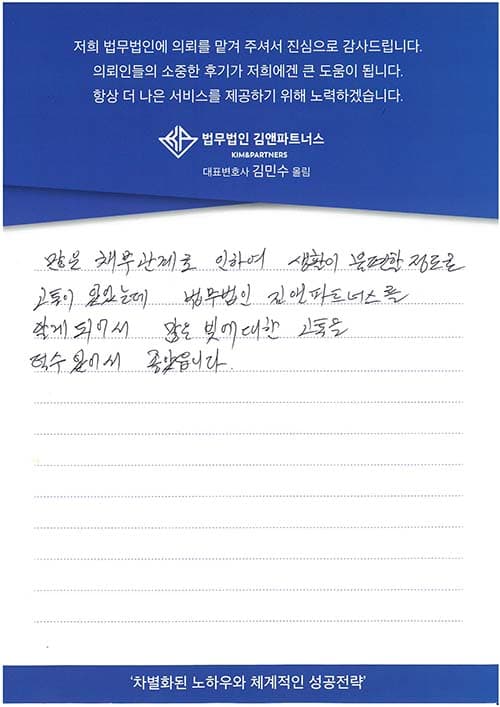 저희 법무법인에 의뢰를 맡겨 주셔서 진심으로 감사드립니다.
의뢰인들의 소중한 후기가 저희에겐 큰 도움이 됩니다.
항상 더 나은 서비스를 제공하기 위해 노력하겠습니다.
법무법인 김앤파트너스
KIM&PARTNERS
대표변호사 김민수 올림
많은 채무관계로 인하여 생활이 불편할 정도로
고통이 있었는데 법무법인 김앤파트너스를
알게 되어서 많은 빚에 대한 고통을
덜수 있어서 좋았읍니다.
'차별화된 노하우와 체계적인 성공전략'